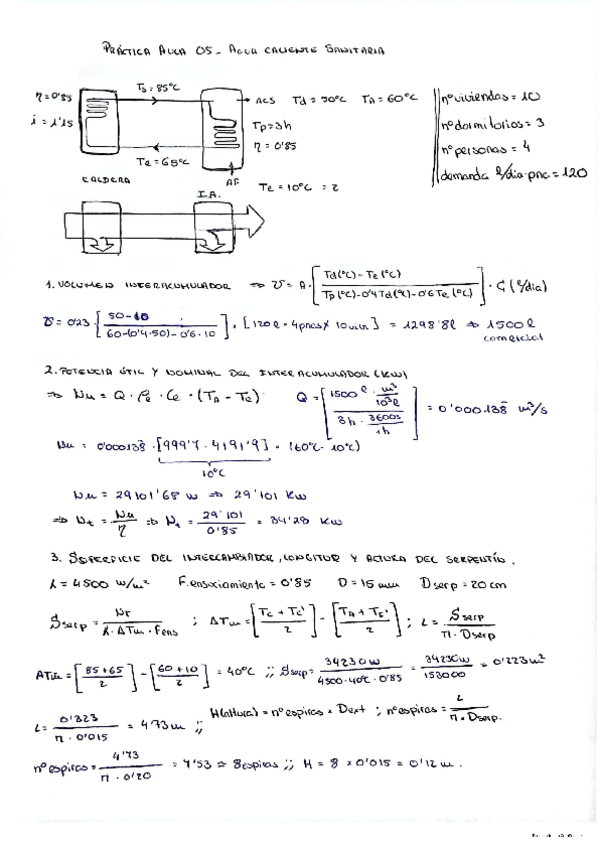 PRÁCTICA AULA 05 - AGUA CALIENTE SANITARIA
η=0'85
i=1'15
Ts=85°C
Te=65°C
CALDERA
→ ACS Td=50°C TA=60°C
Tp=3h
η=0'85
AF Te=10°C = 2
I.A.
nº viviendas = 10
nº dormitorios = 3
nº personas = 4
demanda ℓ/dia·pna = 120
1. VOLUMEN INTERACUMULADOR ⇒ V = A · [Td(°C) - Te(°C) / Tp(°C) - 0'4 Td(°C) - 0'6 Te(°C)] · C (ℓ/dia)
V = 0'23 · [50-10 / 60-(0'4·50)-0'6·10] · [120ℓ · 4pnas x 10 vivi] = 1298'8ℓ ⇒ 1500ℓ
comercial
2. POTENCIA ÚTIL Y NOMINAL DEL INTERACUMULADOR (KW)
⇒ Nu = Q · ρe · Ce · (TA - Te) Q = [1500 ℓ · m³/10³ℓ / 3h · 3600s/1h] = 0'000138 m³/s
Nu = 0'000138 · [999'7 · 4191'9] · (60°C - 10°C)
10°C
Nu = 29101'68 w ⇒ 29'101 Kw
⇒ Nt = Nu/η ⇒ Nt = 29'101/0'85 = 34'23 KW
3. SUPERFICIE DEL INTERCAMBIADOR, LONGITUD Y ALTURA DEL SERPENTÍN.
K = 4500 w/m² F.ensuciamiento = 0'85 D = 15 mm Dserp = 20 cm
Sserp = Nt / K · ΔTm · Fens ; ΔTm = [Tc + Tc' / 2] - [TA + TF' / 2] ; L = Sserp / π · Dserp
ΔTm = [85+65 / 2] - [60+10 / 2] = 40°C ;; Sserp = 34230w / 4500·40°C·0'85 = 34230w / 153000 = 0'223m²
L = 0'223 / π · 0'015 = 4'73 m ;; H(altura) = nº espiras · Dext ; nº espiras = L / π · Dserp.
nº espiras = 4'73 / π · 0'20 = 7'53 ≈ 8 espiras ;; H = 8 x 0'015 = 0'12 m.